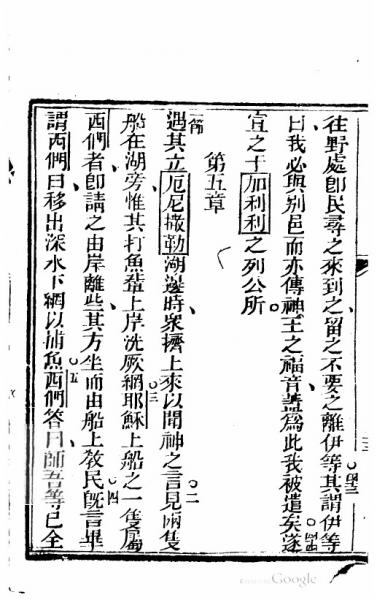 往野處卽民尋之來到之留之不要之離伊等其謂伊等
曰我必與别邑而亦傳神王之福音蓋爲此我被遣矣遂
宣之于加利利之列公所
第五章
一節遇其立厄尼撒勒湖邊時衆擠上來以聞神之言二見兩隻
船在湖旁惟其打魚輩上岸洗厥網三耶穌上船之一隻屬
西們者卽請之由岸離些其方坐而由船上教民四旣言畢
謂西們曰移出深水下網以捕魚五西們答曰師吾等已全
Google